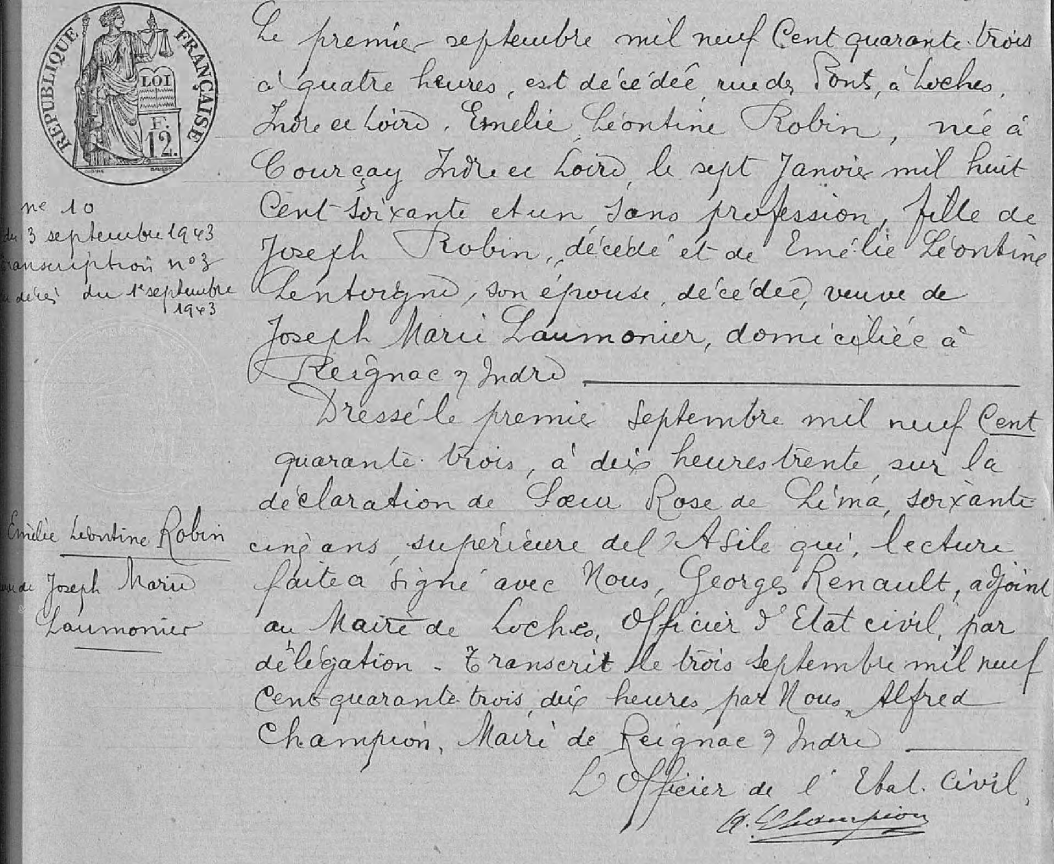 RÉPUBLIQUE FRANÇAISE
LOI
F.
12.
Le premier septembre mil neuf Cent quarante trois
à quatre heures, est décédée, rue des Ponts, à Loches,
Indre et Loire, Emélie, Léontine Robin, née à
Courçay Indre et Loire, le sept Janvier mil huit
Cent soixante et un sans profession, fille de
Joseph Robin, décédé et de Emélie Léontine
son épouse, décédée, veuve de
Joseph Marie Laumonier, domiciliée à
Reignac s/ Indre
Dressé le premier septembre mil neuf Cent
quarante trois, à dix heures trente, sur la
déclaration de Sœur Rose de Lima, soixante
cinq ans, supérieure de l'Asile qui, lecture
faite a signé avec Nous, Georges Renault, adjoint
au Maire de Loches, Officier d'Etat civil, par
délégation - Transcrit le trois septembre mil neuf
Cent quarante trois, dix heures par Nous, Alfred
Champion, Maire de Reignac s/ Indre
L'Officier de l'Etat Civil,
A. Champion
n° 10
du 3 septembre 1943
transcription n° 3
décès du 1er septembre
1943
Emélie Léontine Robin
Joseph Marie
Laumonier